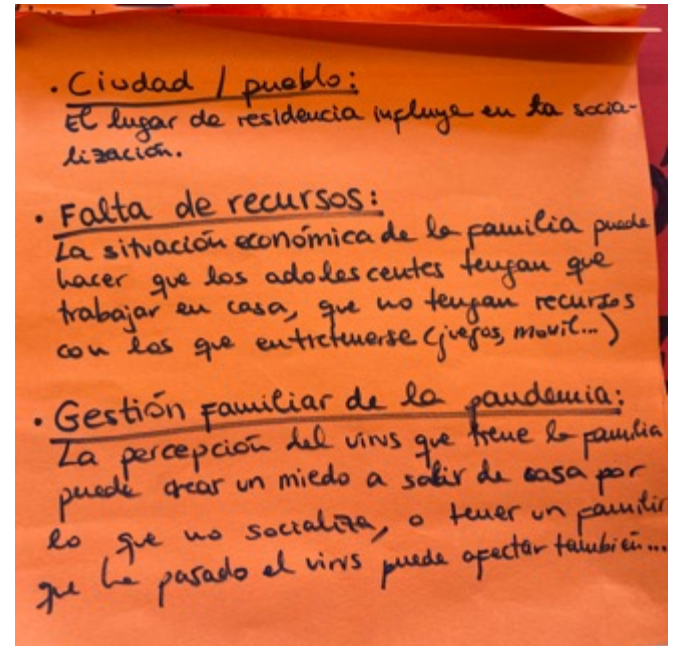 · Ciudad / pueblo:
El lugar de residencia influye en la socia-
lización.
· Falta de recursos:
La situación económica de la familia puede
hacer que los adolescentes tengan que
trabajar en casa, que no tengan recursos
con los que entretenerse (juegos, movil...)
· Gestión familiar de la pandemia:
La percepción del virus que tiene la familia
puede crear un miedo a salir de casa por
lo que no socializa, o tener un familir
que ha pasado el virus puede afectar también...